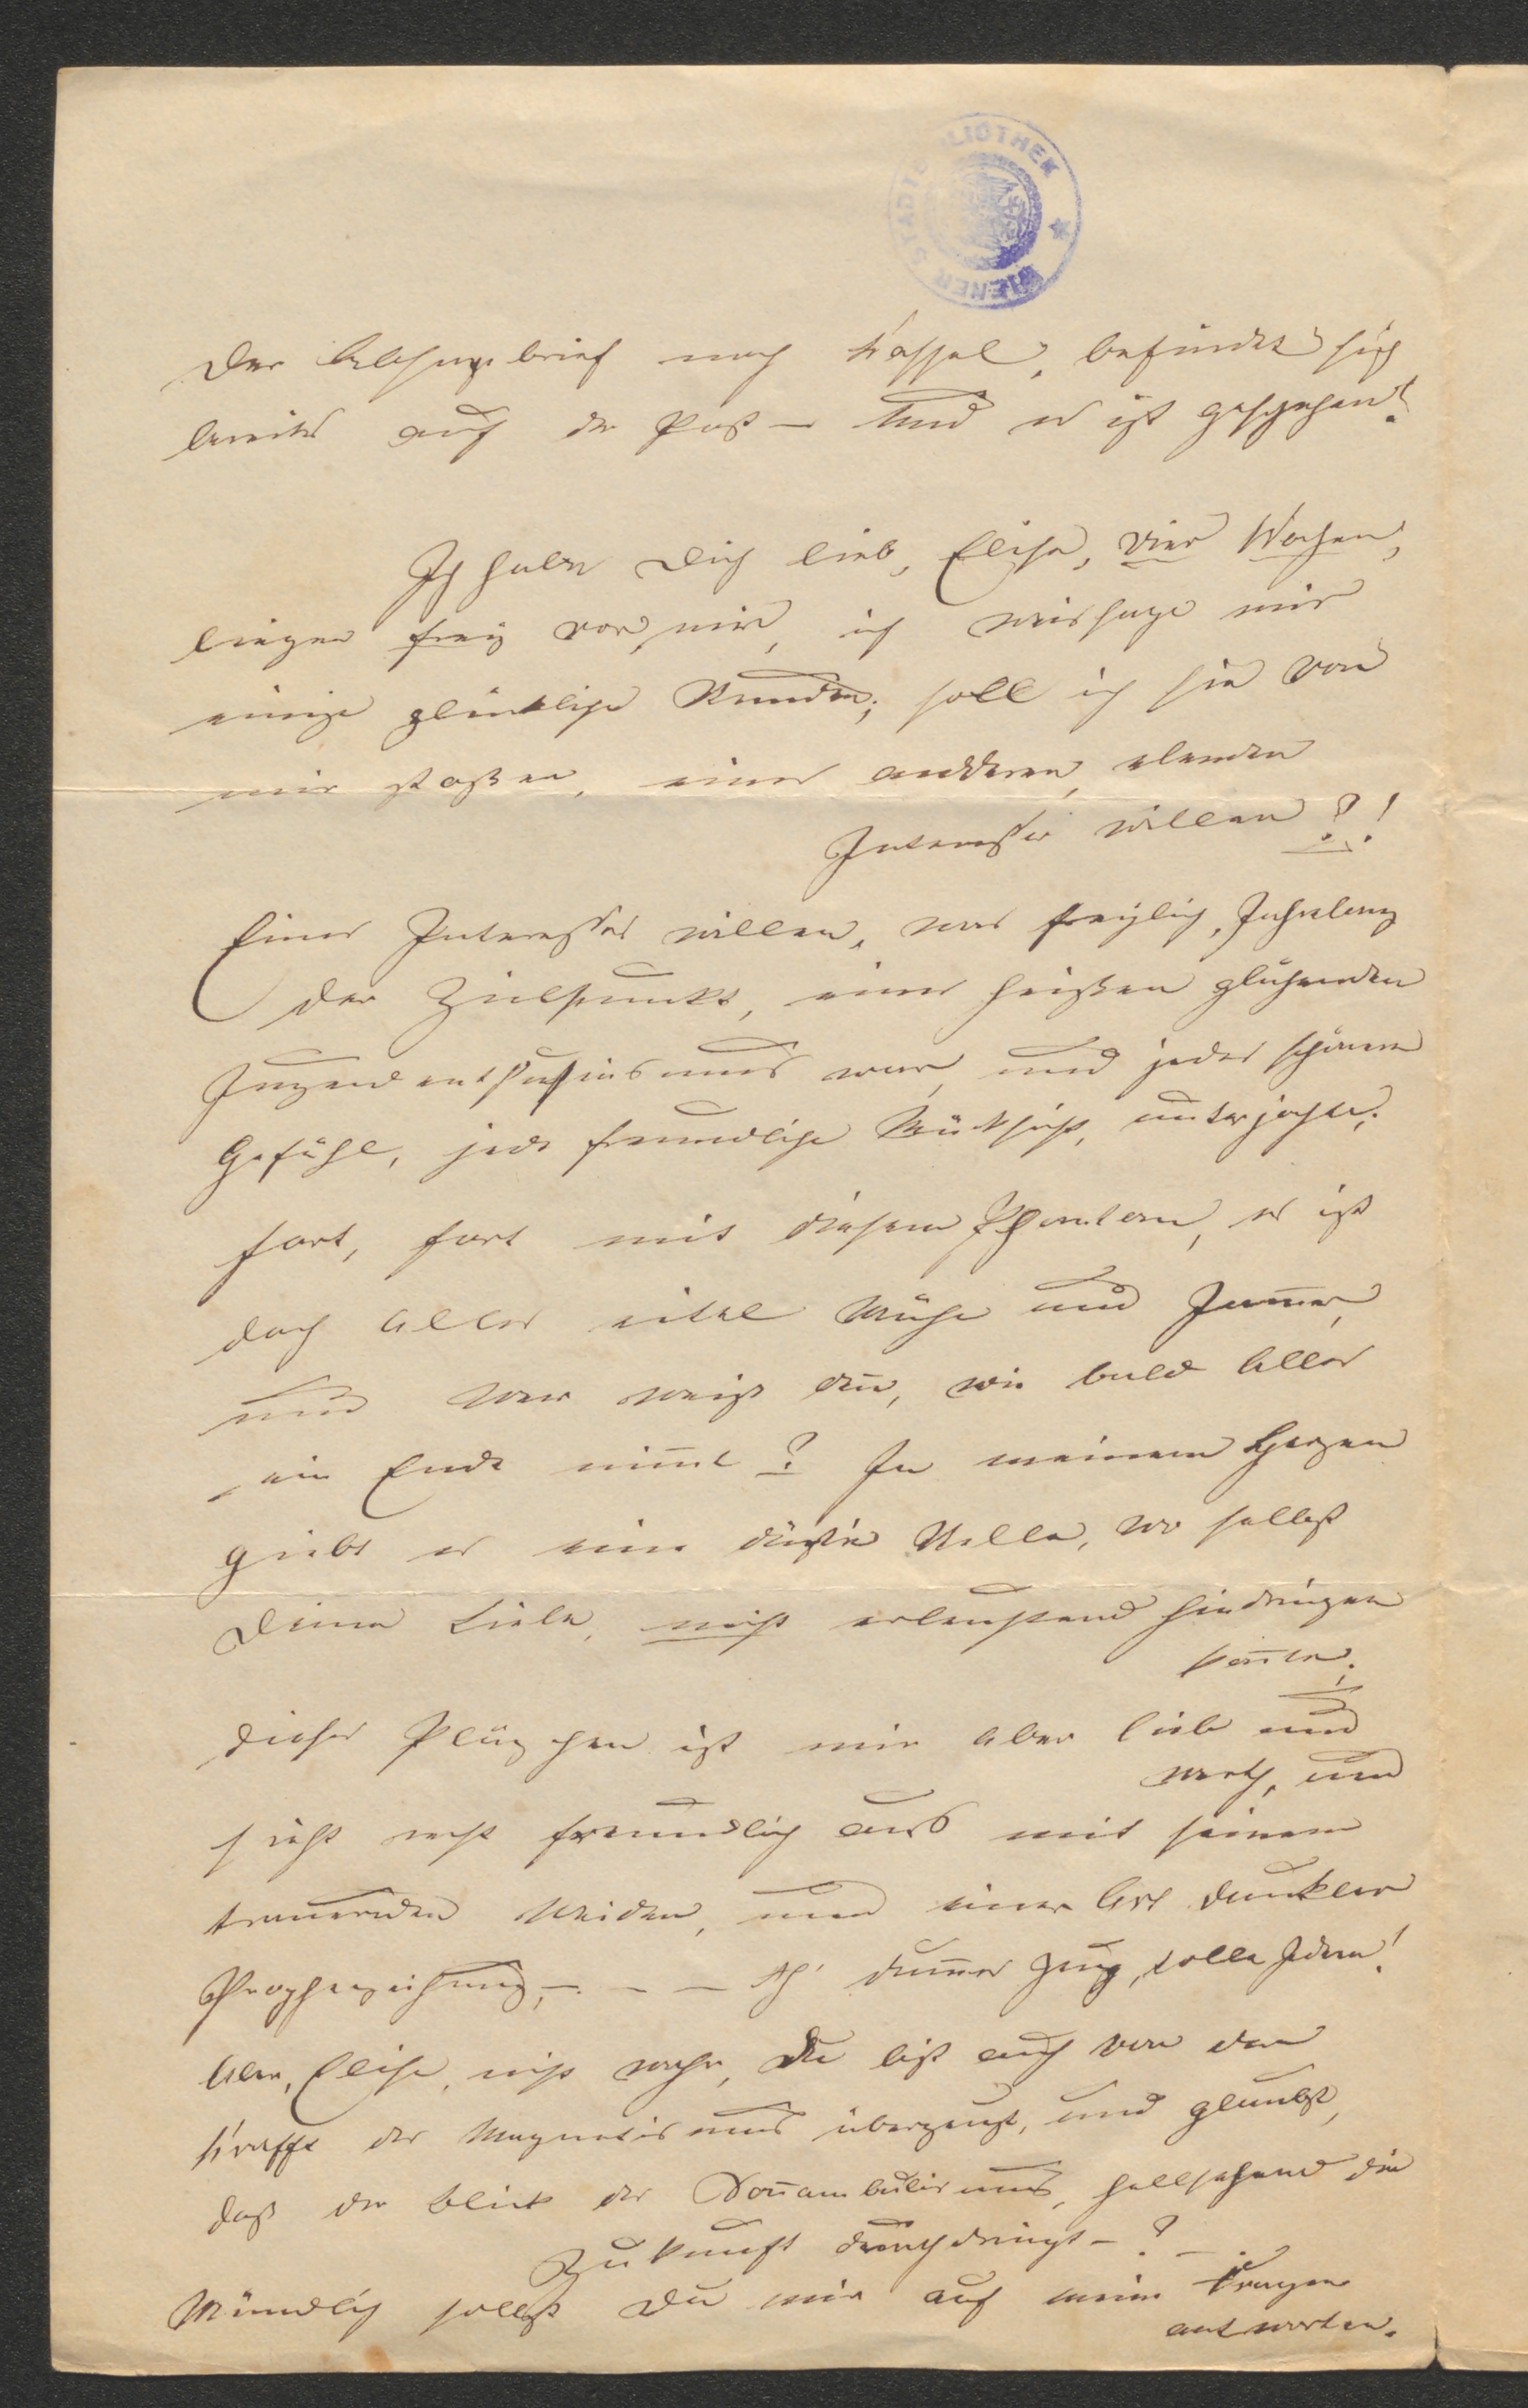 WIENER STADTBIBLIOTHEK
Der Absagebrief nach Kassel, befindet sich
bereits auf der Post – Und es ist geschehen!
Ich habe Dich lieb, Elise, vier Wochen,
liegen frey vor mir, ich weissage mir
einige glückliche Stunden; soll ich sie von
mir stoßen, eines anderen, elenden
Interesse's willen?!
Eines Interesses willen, was freylich, Jahrelang
der Zielpunkt, eines heißen glühenden
Jugendenthusiasmus war, und jedes schönere
Gefühl, jede freundliche Rücksicht, unterjochte;
fort, fort mit diesem Phantom, es ist
doch Alles eitel Mühe und Jam̄er,
und Wer weiß den̄, wie bald Alles
ein Ende nim̄t? In meinem Herzen
giebt es eine düstre Stelle, wo selbst
Deine Liebe, nicht erleuchtend hindringen
kon̄te;
dieses Pläzchen ist mir aber lieb und
werth, und
sieht recht freundlich aus mit seinen
trauernden Weiden, und einer Art dunkler
Prophezeihung, – – – Ah' dum̄es Zeug, tolle Ideen!
Aber, Elise, nicht wahr, Du bist auch von der
Kraft des Magnetismus überzeugt, und glaubst,
daß der Blick des Som̄ambulismus, hellsehend die
Zukunft durchdringt – ? –
Mündlich sollst Du mir auf meine Fragen
antworten.